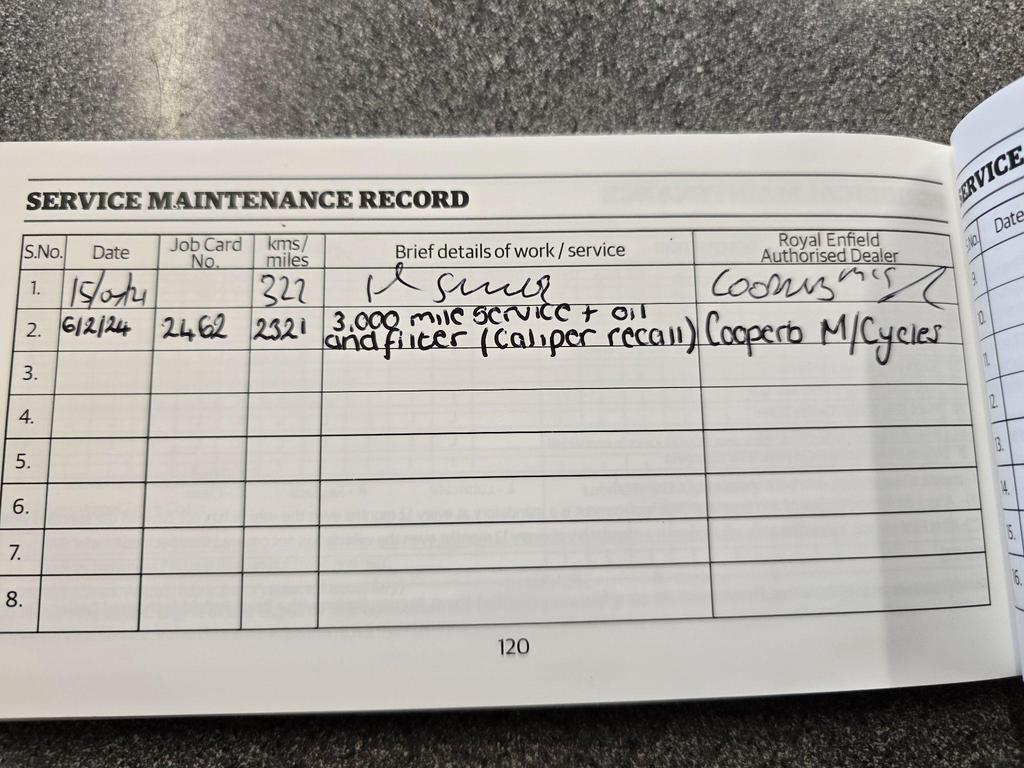 SERVICE MAINTENANCE RECORD
S.No. Date Job Card No. kms/ miles Brief details of work / service Royal Enfield Authorised Dealer
1. 322
2. 6/2/24 2462 2321 3,000 mile service + oil
and filter (Caliper recall) Coopers M/Cycles
3.
4.
5.
6.
7.
8.
120
SERVICE
S.No. Date
9.
10.
11.
12.
13.
14.
15.
16.